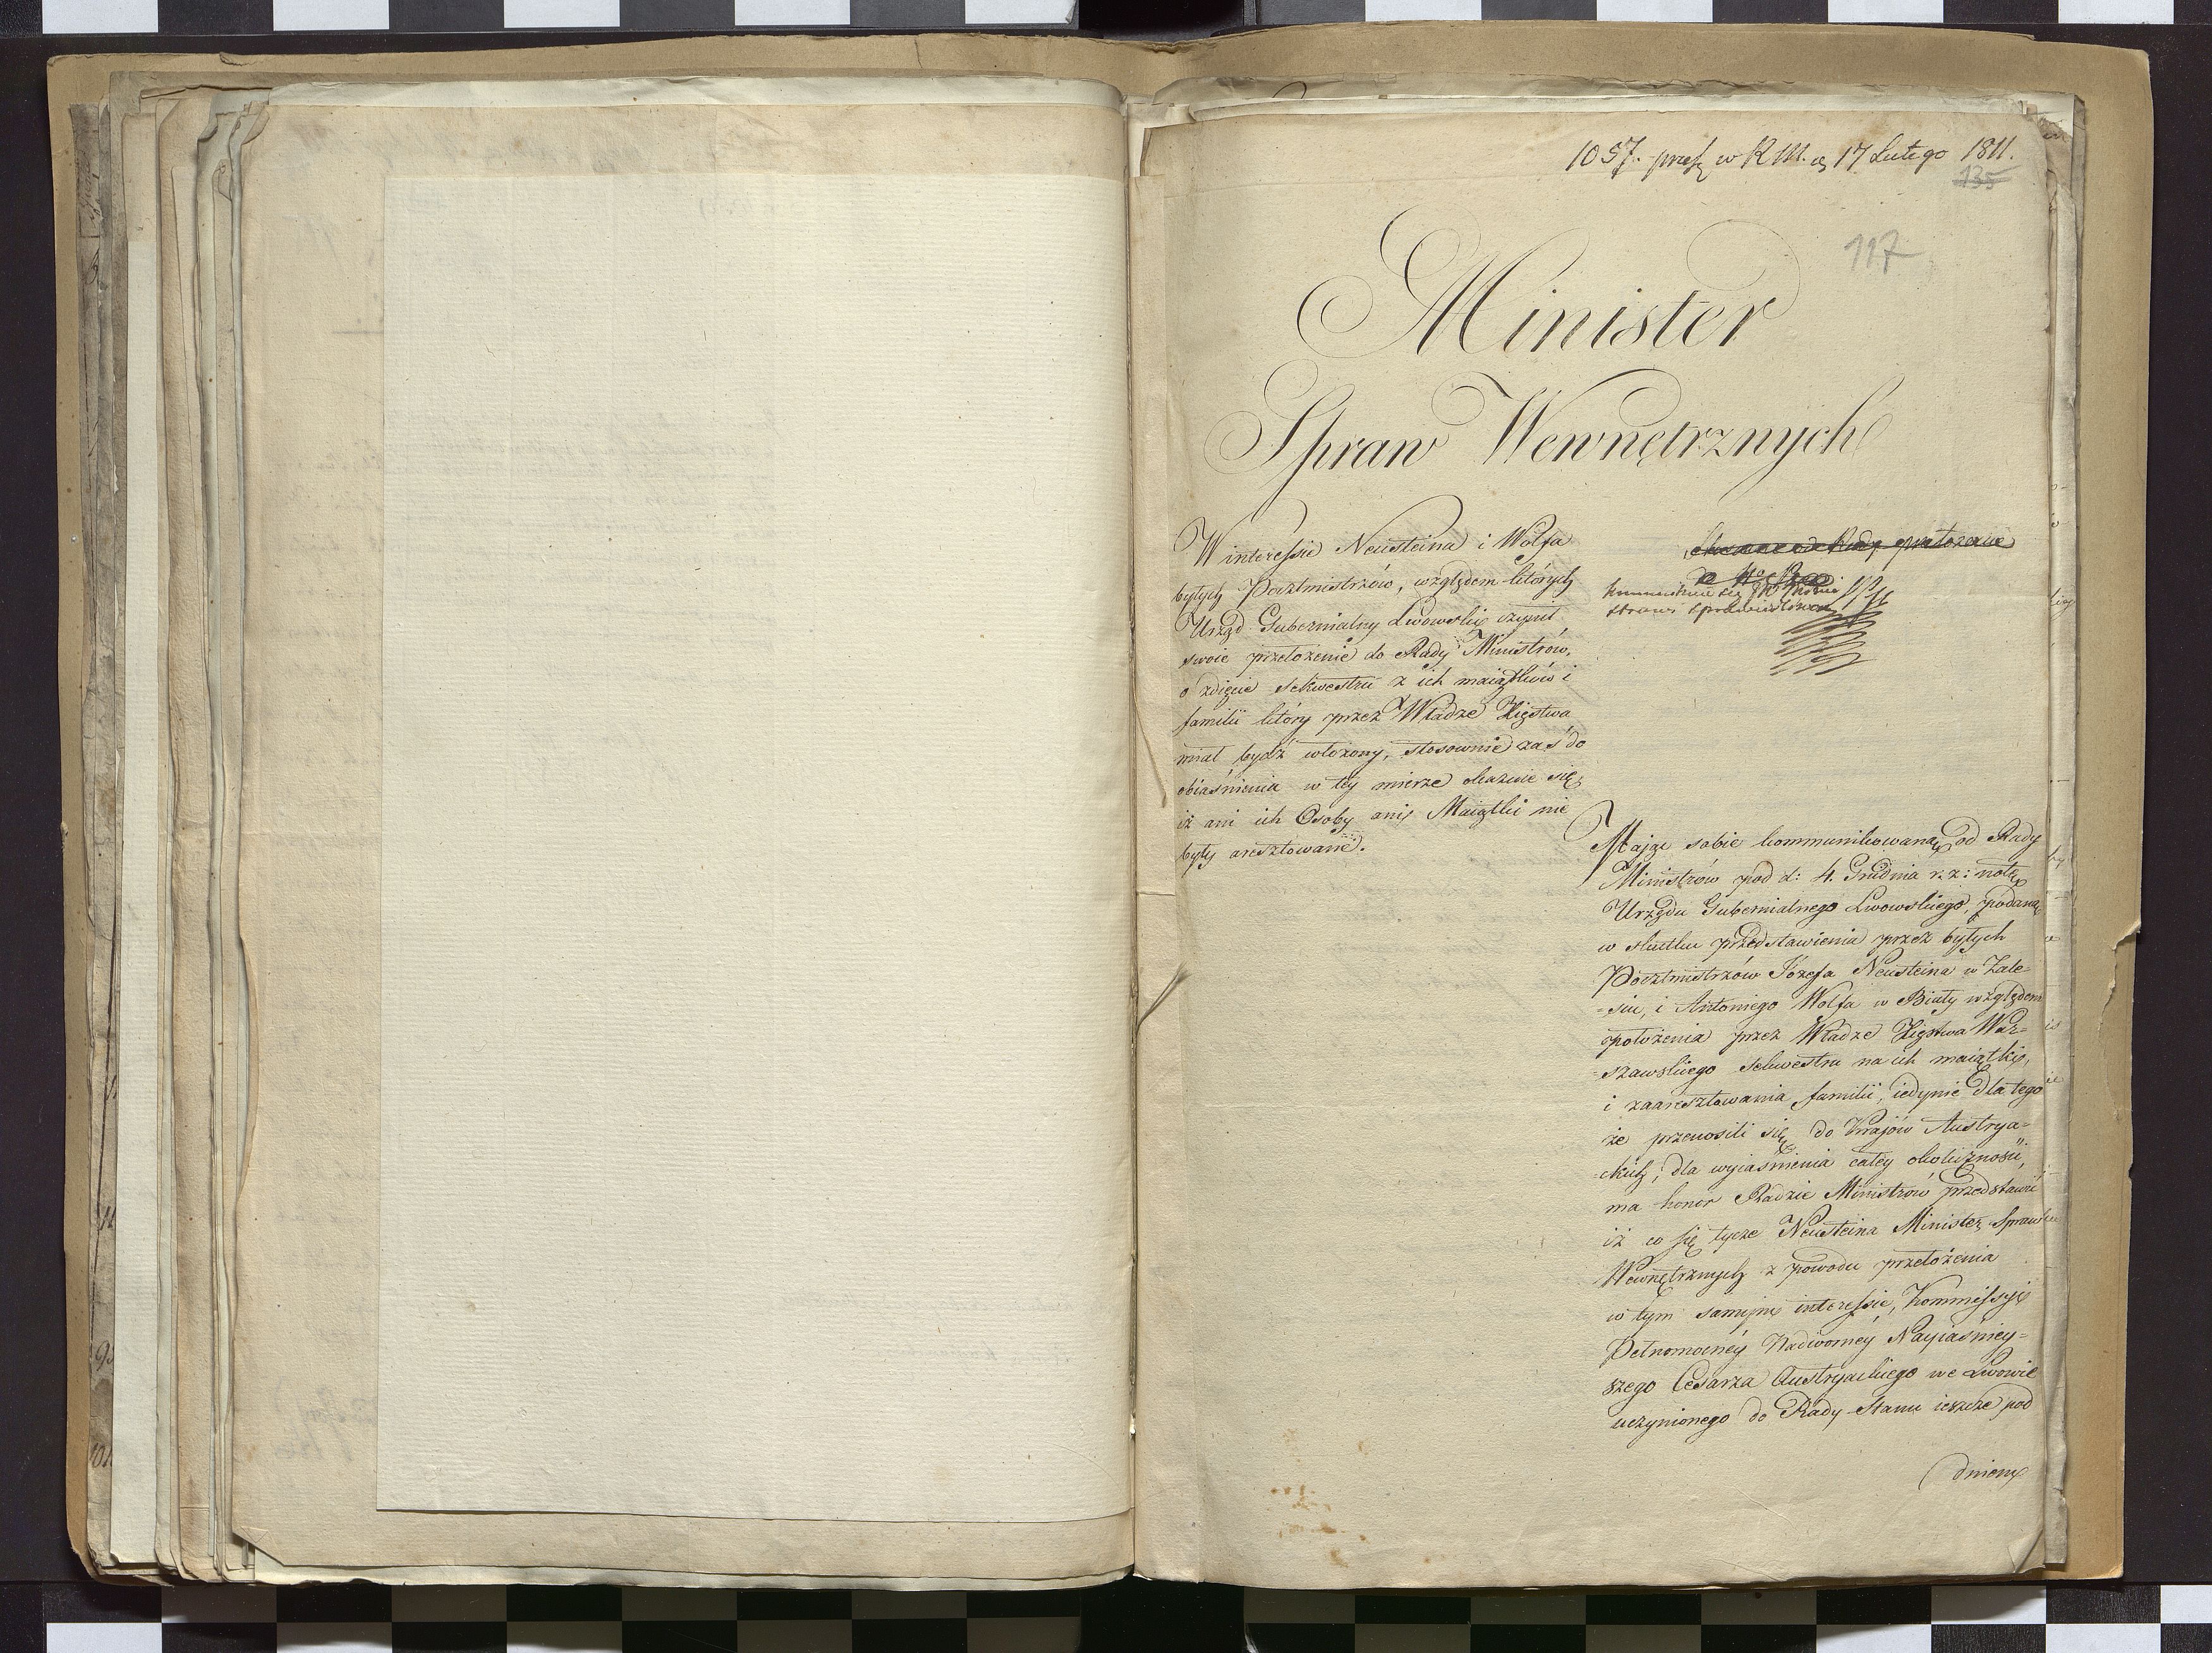 1057. pręs w R M. d 17 Lutego 1811.
135
117
Minister
Spraw Wewnętrznych
W interessie Neusteina i Wolfa
bytych Pocztmistrzów, względem których
Urząd Gubernialny Lwowski czynił
swoie przełożenie do Rady Ministrów,
o zdięcie sekwestru z ich maiątków i
familii który przez Władze Xięstwa
miał bydź włożony, stosownie zaś do
obiaśnienia w tey mierze okazuie się
iż ani ich Osoby ani Maiątki nie
były aresztowane.
Mając sobie kommunikowaną od Rady
Ministrów pod d: 4. Grudnia r. z: notę
Urzędu Gubernialnego Lwowskiego, podaną
w skutku przedstawienia przez bytych
Pocztmistrzów Józefa Neusteina w Zale-
-siu, i Antoniego Wolfa w Biały względem
położenia przez Władze Xięstwa War-
-szawskiego sekwestru na ich maiątki,
i zaaresztowania familii, iedynie dla tego
że przenosili się do Krajów Austrya-
-ckich, dla wyiaśnienia całey okoliczności,
ma honor Radzie Ministrów przedstawić
iż co się tycze Neusteina Minister Spraw
Wewnętrznych z powodu przełożenia
w tym samym interessie, Kommissyi
Pełnomocney Nadworney Nayiaśniey-
szego Cesarza Austryackiego we Lwowie
uczynionego do Rady Stanu ieszcze pod
dniem